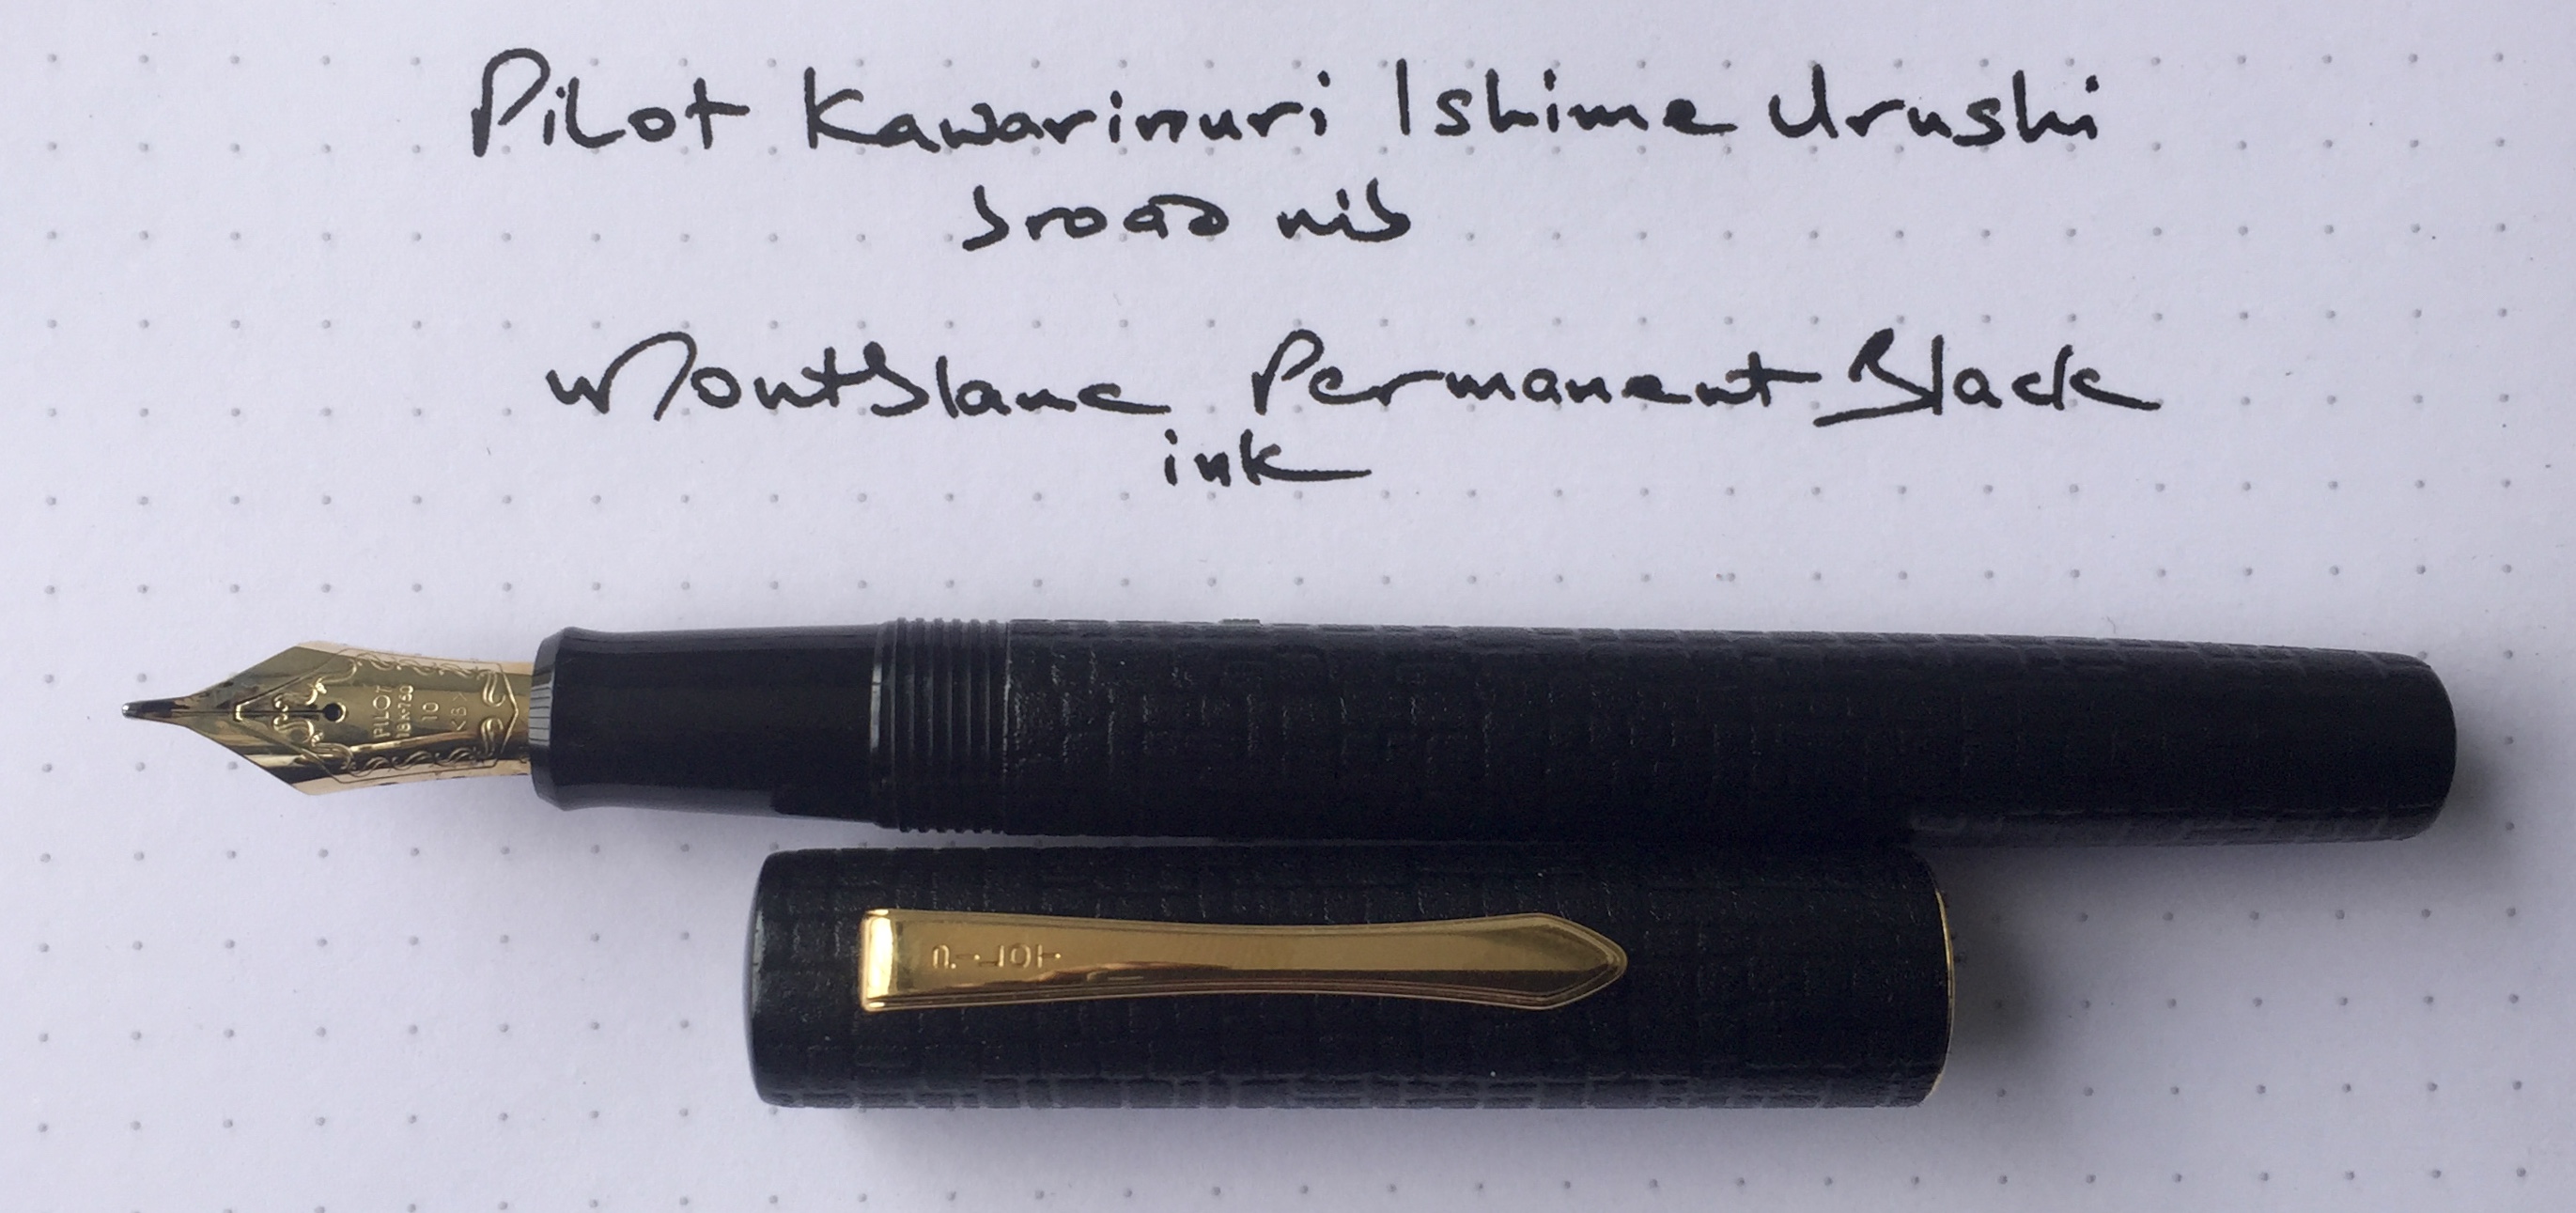 Pilot Kawarinuri Ishime Urushi
broad nib
Montblanc Permanent Black
ink
PILOT
18K-750
10
<B>
PILOT